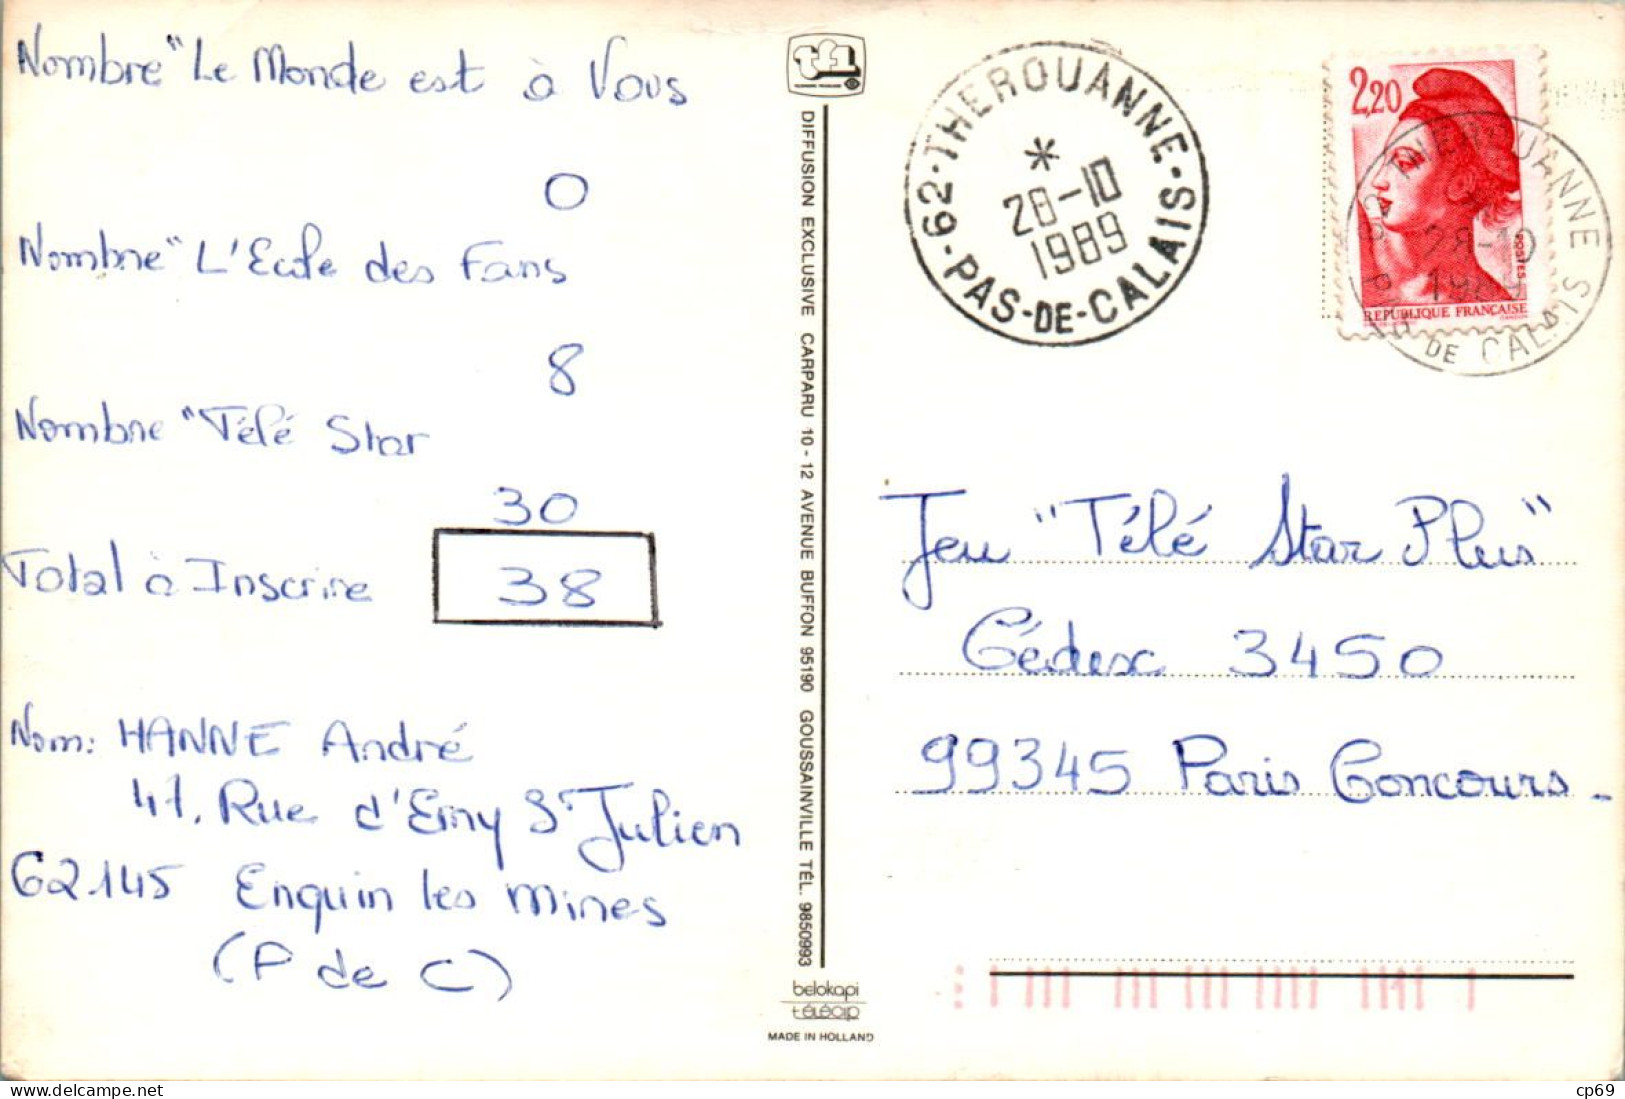 Nombre "Le Monde est à Vous
0
Nombre "L'Ecole des Fans
8
Nombre "Télé Star
30
Total à Inscrire 38
Nom: HANNE André
41, Rue d'Erny St Julien
62145 Enquin les Mines
(P de C)
tf1
DIFFUSION EXCLUSIVE CARPARU 10-12 AVENUE BUFFON 95190 GOUSSAINVILLE TÉL. 9850993
belokapi
téléclip
MADE IN HOLLAND
62-THEROUANNE-PAS-DE-CALAIS
*
28-10
1989
2,20
POSTES
REPUBLIQUE FRANÇAISE
62 THEROUANNE
28-10
1989
PAS DE CALAIS
Jeu "Télé Star Plus"
Cédex 3450
99345 Paris Concours -
cp69